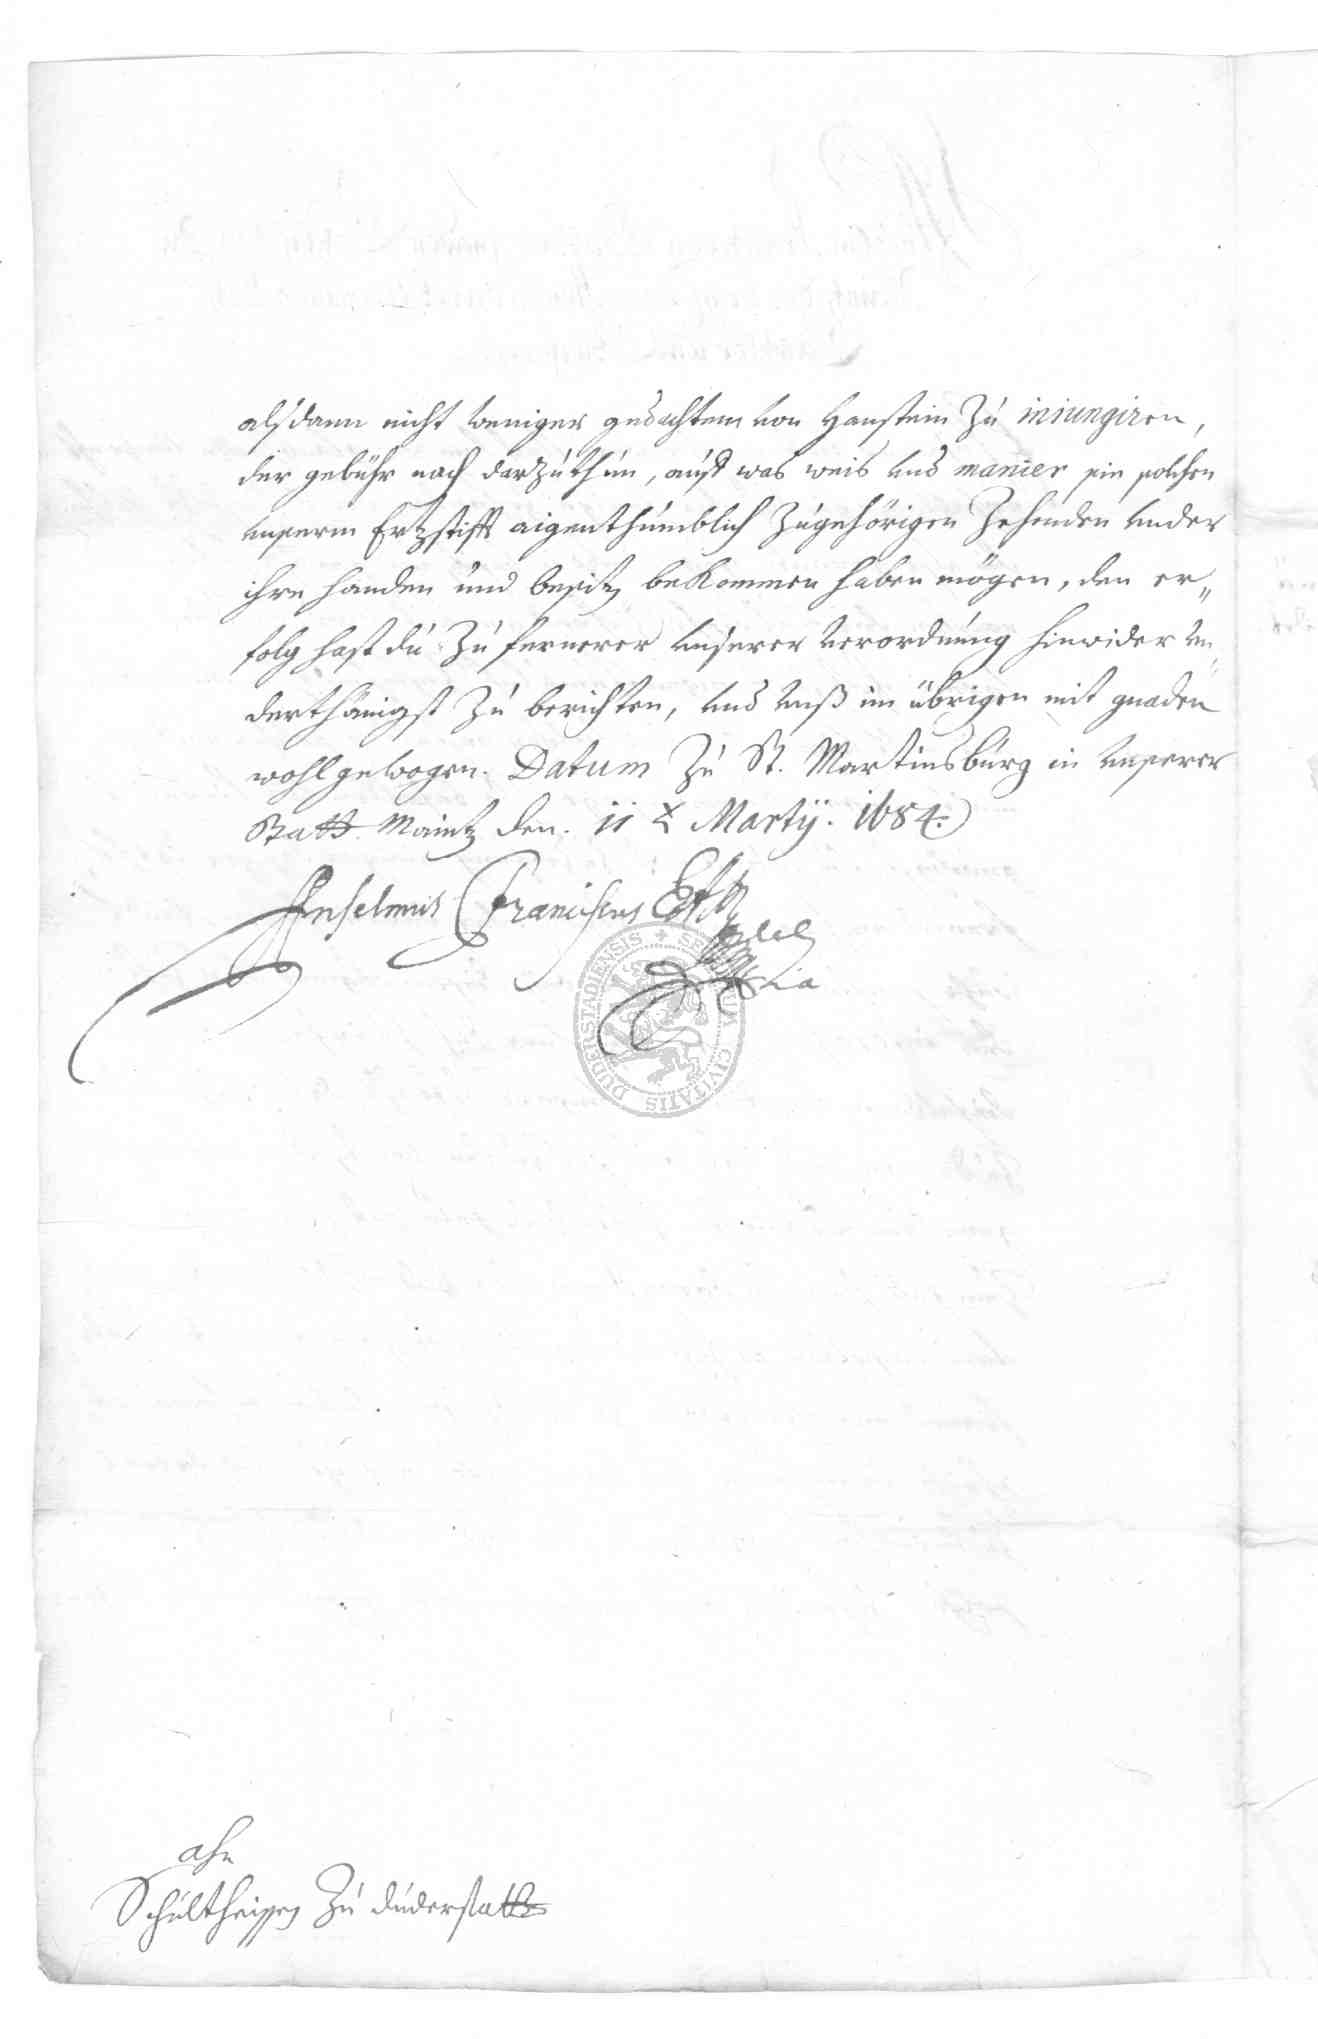 alsdann nicht weniger gedachtem von Hanstein zu iniungiren,
der gebühr nach darzuthun, auff was weis und manier sie solchen
unserm Ertzstifft aigenthümblich zugehörigen Zehenden under
ihre handen und besitz bekommen haben mögen, den er„
folg hast du zu fernerer unserer verordnung hinwider un
derthänigst zu berichten, und uns im übrigen mit gnaden
wohlgewogen. Datum zu St. Martinsburg in unserer
Statt Maintz den. 11 Martÿ. 1684.
Anselmus Franciscus
SECRETUM CIVITATIS DUDERSTADIENSIS
ahn
Schultheissen zu duderstatt